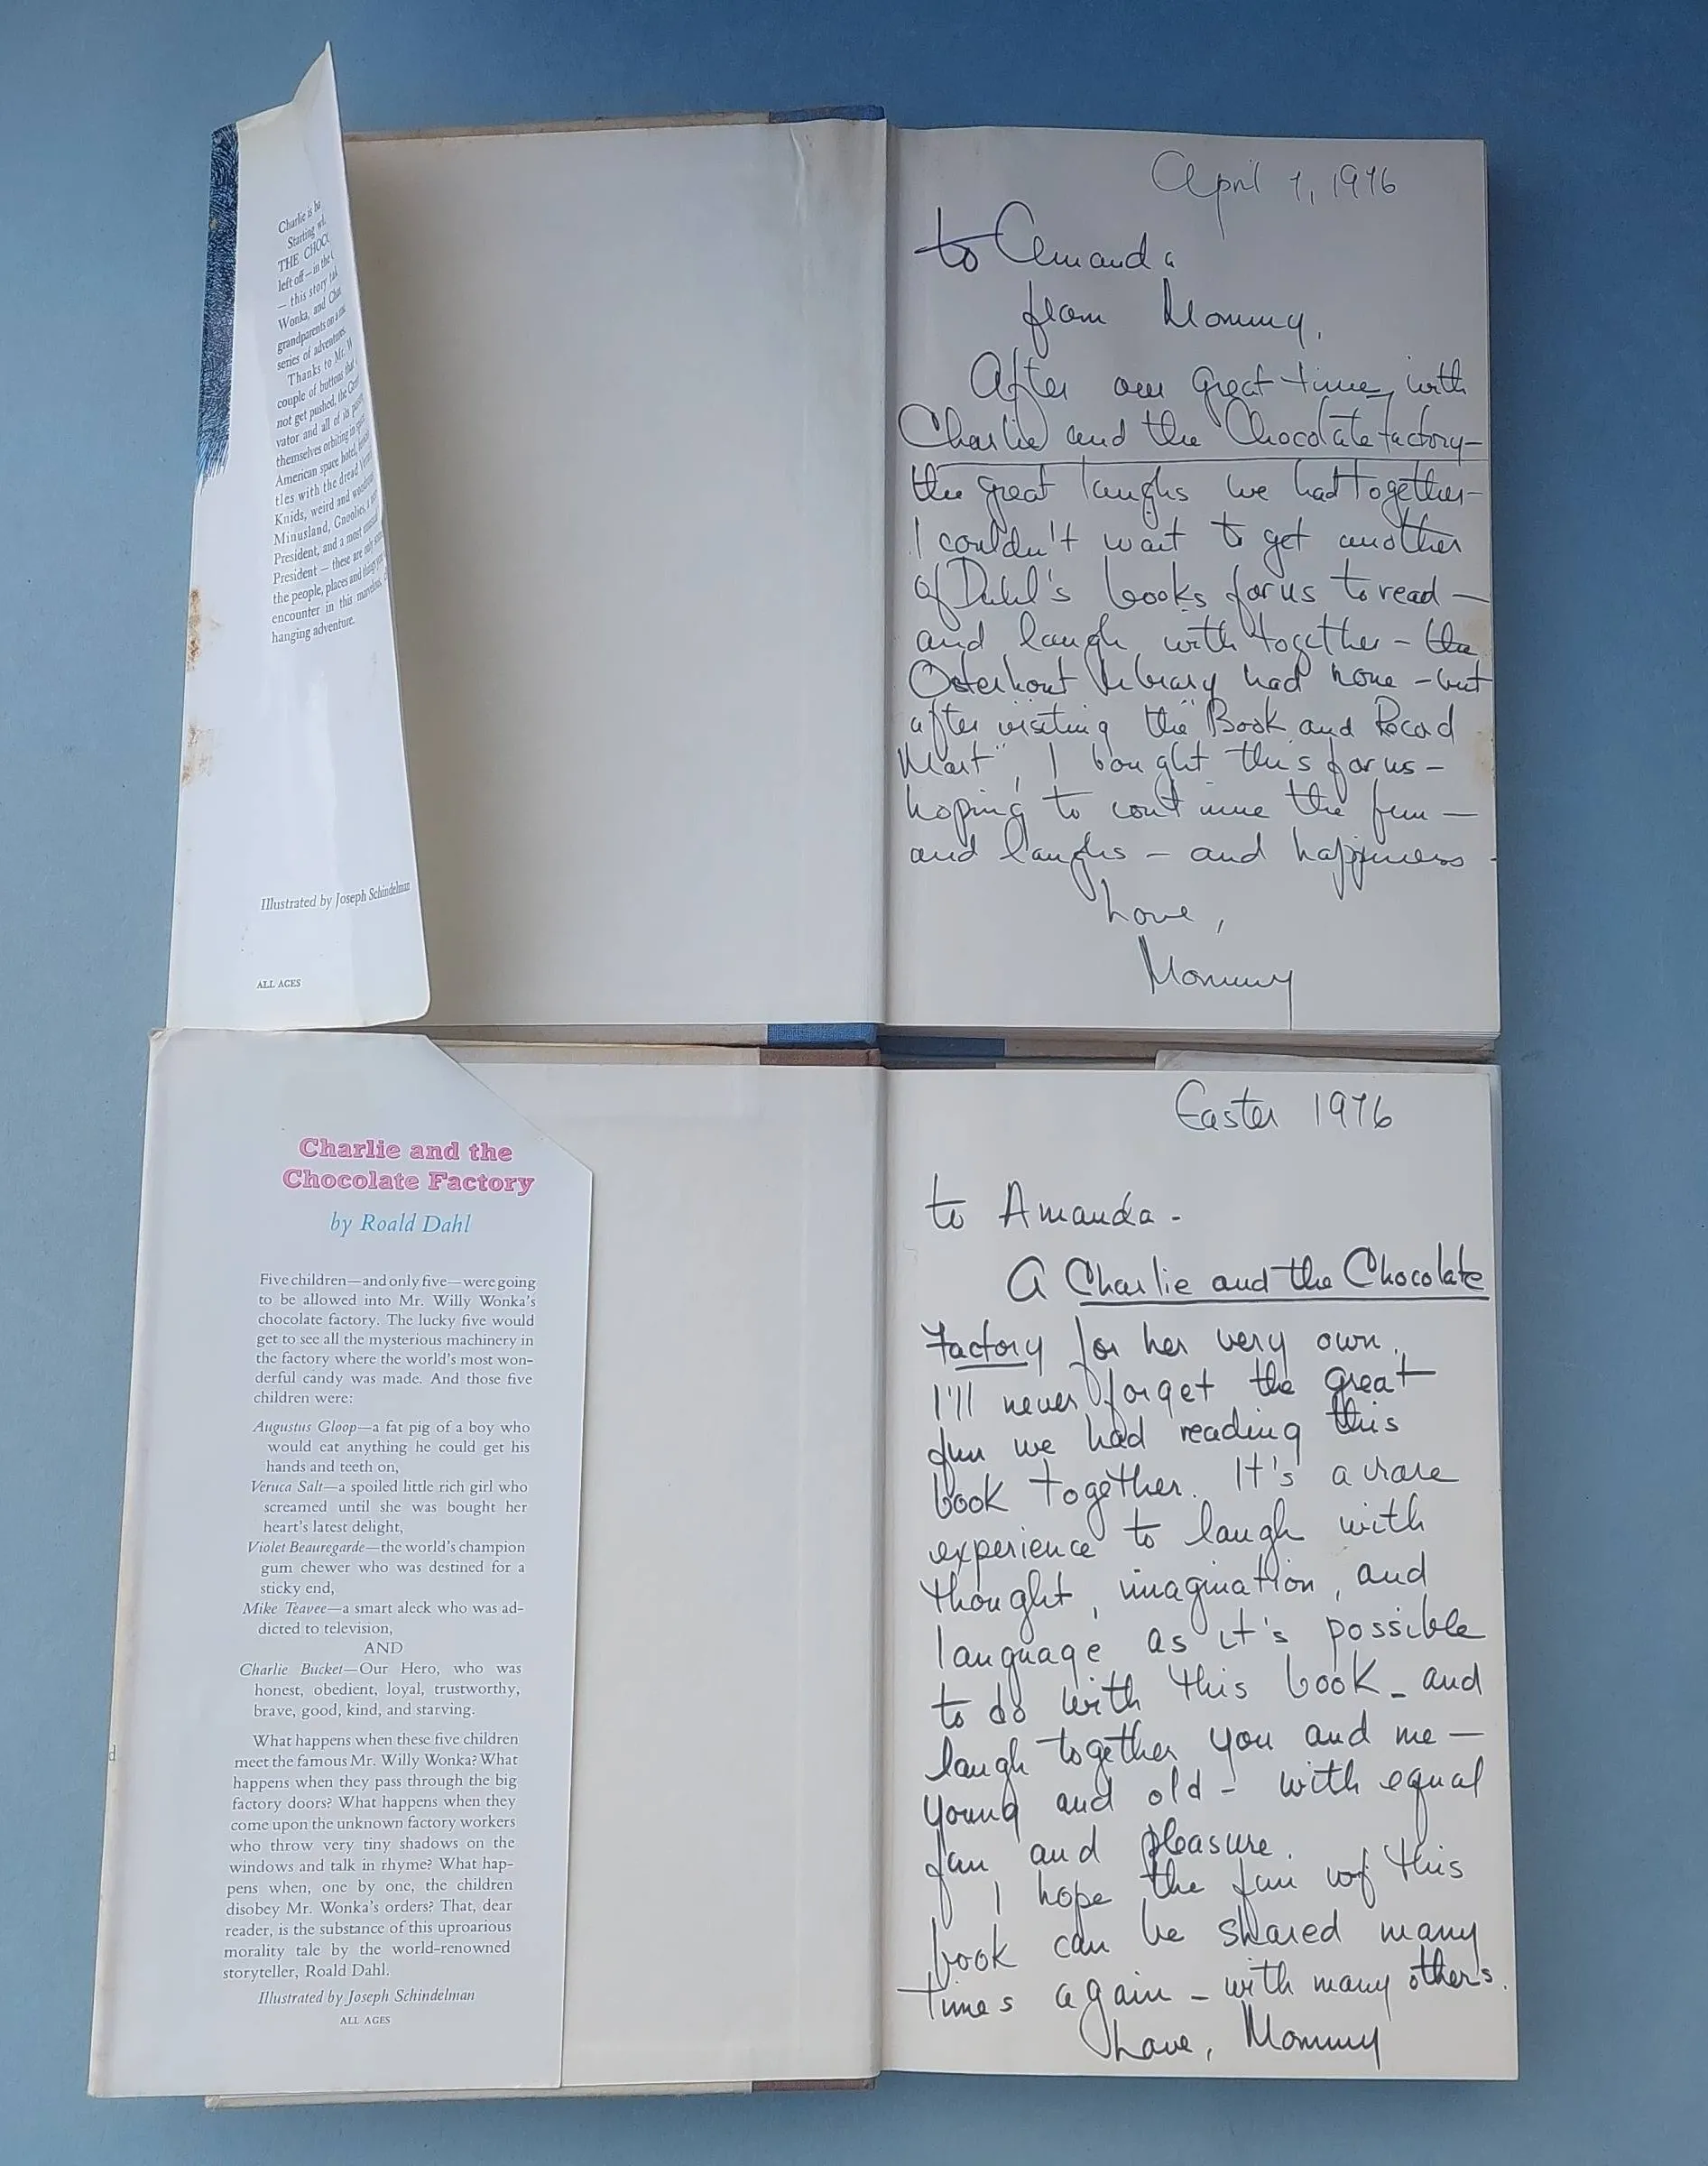 Charlie is ba
Starting wi
THE CHOC
left off—in the
— this story tak
Wonka, and Cha
grandparents on a
series of adventures.
Thanks to Mr. W
couple of buttons that
not get pushed, the Great
vator and all of its
themselves orbiting in
American space hotel,
tles with the dread
Knids, weird and
Minusland, Gnoolies, a
President, and a most
President — these are only
the people, places and things you
encounter in this
hanging adventure.
Illustrated by Joseph Schindelman
ALL AGES
April 7, 1976
to Amanda
from Mommy.
After our great time, with
Charlie and the Chocolate factory—
the great laughs we had together—
I couldn't wait to get another
of Dahl's books for us to read —
and laugh with together — the
Osterhout Library had none — but
after visiting the "Book and Record
Mart", I bought this for us —
hoping to continue the fun —
and laughs — and happiness -
Love,
Mommy
Charlie and the
Chocolate Factory
by Roald Dahl
Five children—and only five—were going
to be allowed into Mr. Willy Wonka's
chocolate factory. The lucky five would
get to see all the mysterious machinery in
the factory where the world's most won-
derful candy was made. And those five
children were:
Augustus Gloop—a fat pig of a boy who
would eat anything he could get his
hands and teeth on,
Veruca Salt—a spoiled little rich girl who
screamed until she was bought her
heart's latest delight,
Violet Beauregarde—the world's champion
gum chewer who was destined for a
sticky end,
Mike Teavee—a smart aleck who was ad-
dicted to television,
AND
Charlie Bucket—Our Hero, who was
honest, obedient, loyal, trustworthy,
brave, good, kind, and starving.
What happens when these five children
meet the famous Mr. Willy Wonka? What
happens when they pass through the big
factory doors? What happens when they
come upon the unknown factory workers
who throw very tiny shadows on the
windows and talk in rhyme? What hap-
pens when, one by one, the children
disobey Mr. Wonka's orders? That, dear
reader, is the substance of this uproarious
morality tale by the world-renowned
storyteller, Roald Dahl.
Illustrated by Joseph Schindelman
ALL AGES
Easter 1976
to Amanda -
A Charlie and the Chocolate
Factory for her very own.
I'll never forget the great
fun we had reading this
book together. It's a rare
experience to laugh with
thought, imagination, and
language as it's possible
to do with this book - and
laugh together you and me —
young and old - with equal
fun and pleasure.
I hope the fun of this
book can be shared many
times again - with many others.
Love, Mommy